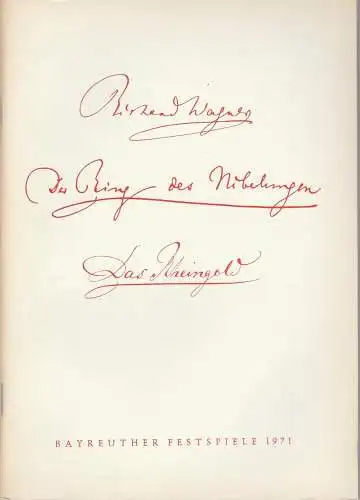 Richard Wagner
Der Ring des Nibelungen
Das Rheingold
BAYREUTHER FESTSPIELE 1971